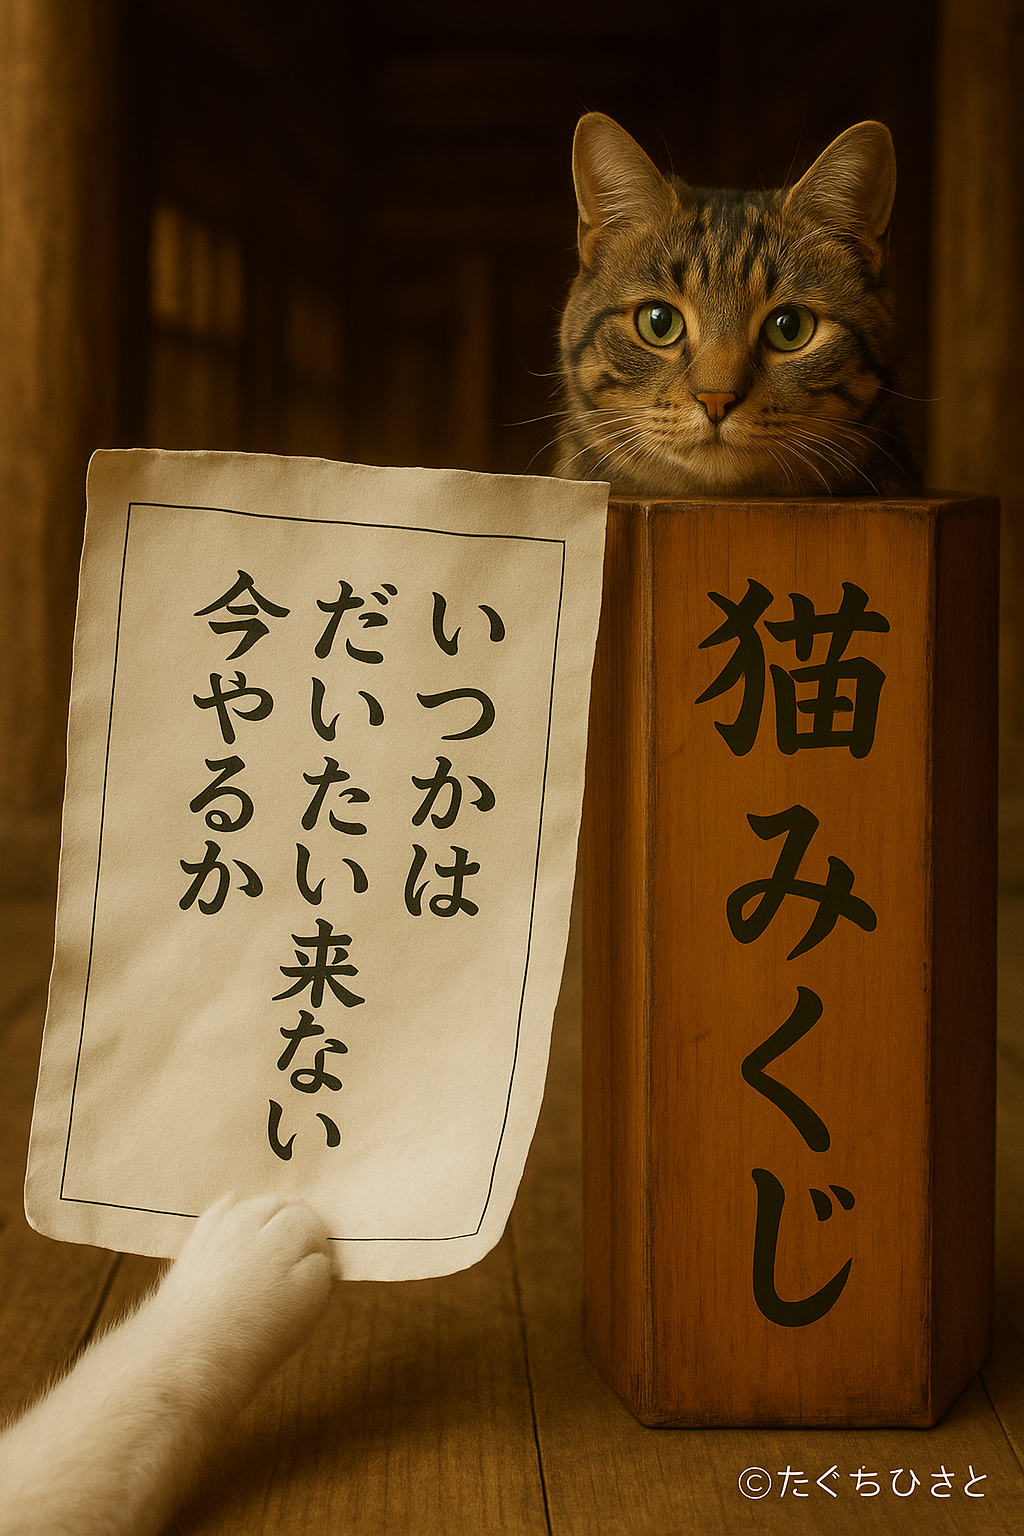 いつかは
だいたい来ない
今やるか
猫みくじ
©たぐちひさと